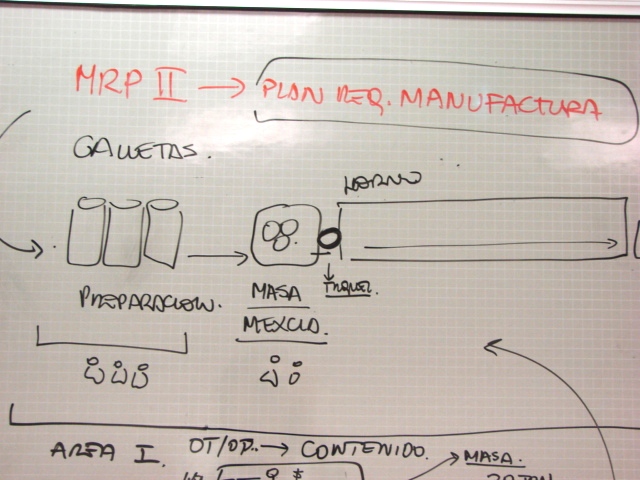 MRP II → PLAN REQ. MANUFACTURA
GALLETAS.
HORNO
PREPARACION.
MASA
MEXCLA.
TROQUEL.
AREA I. OT/OP.. → CONTENIDO. → MASA.
$